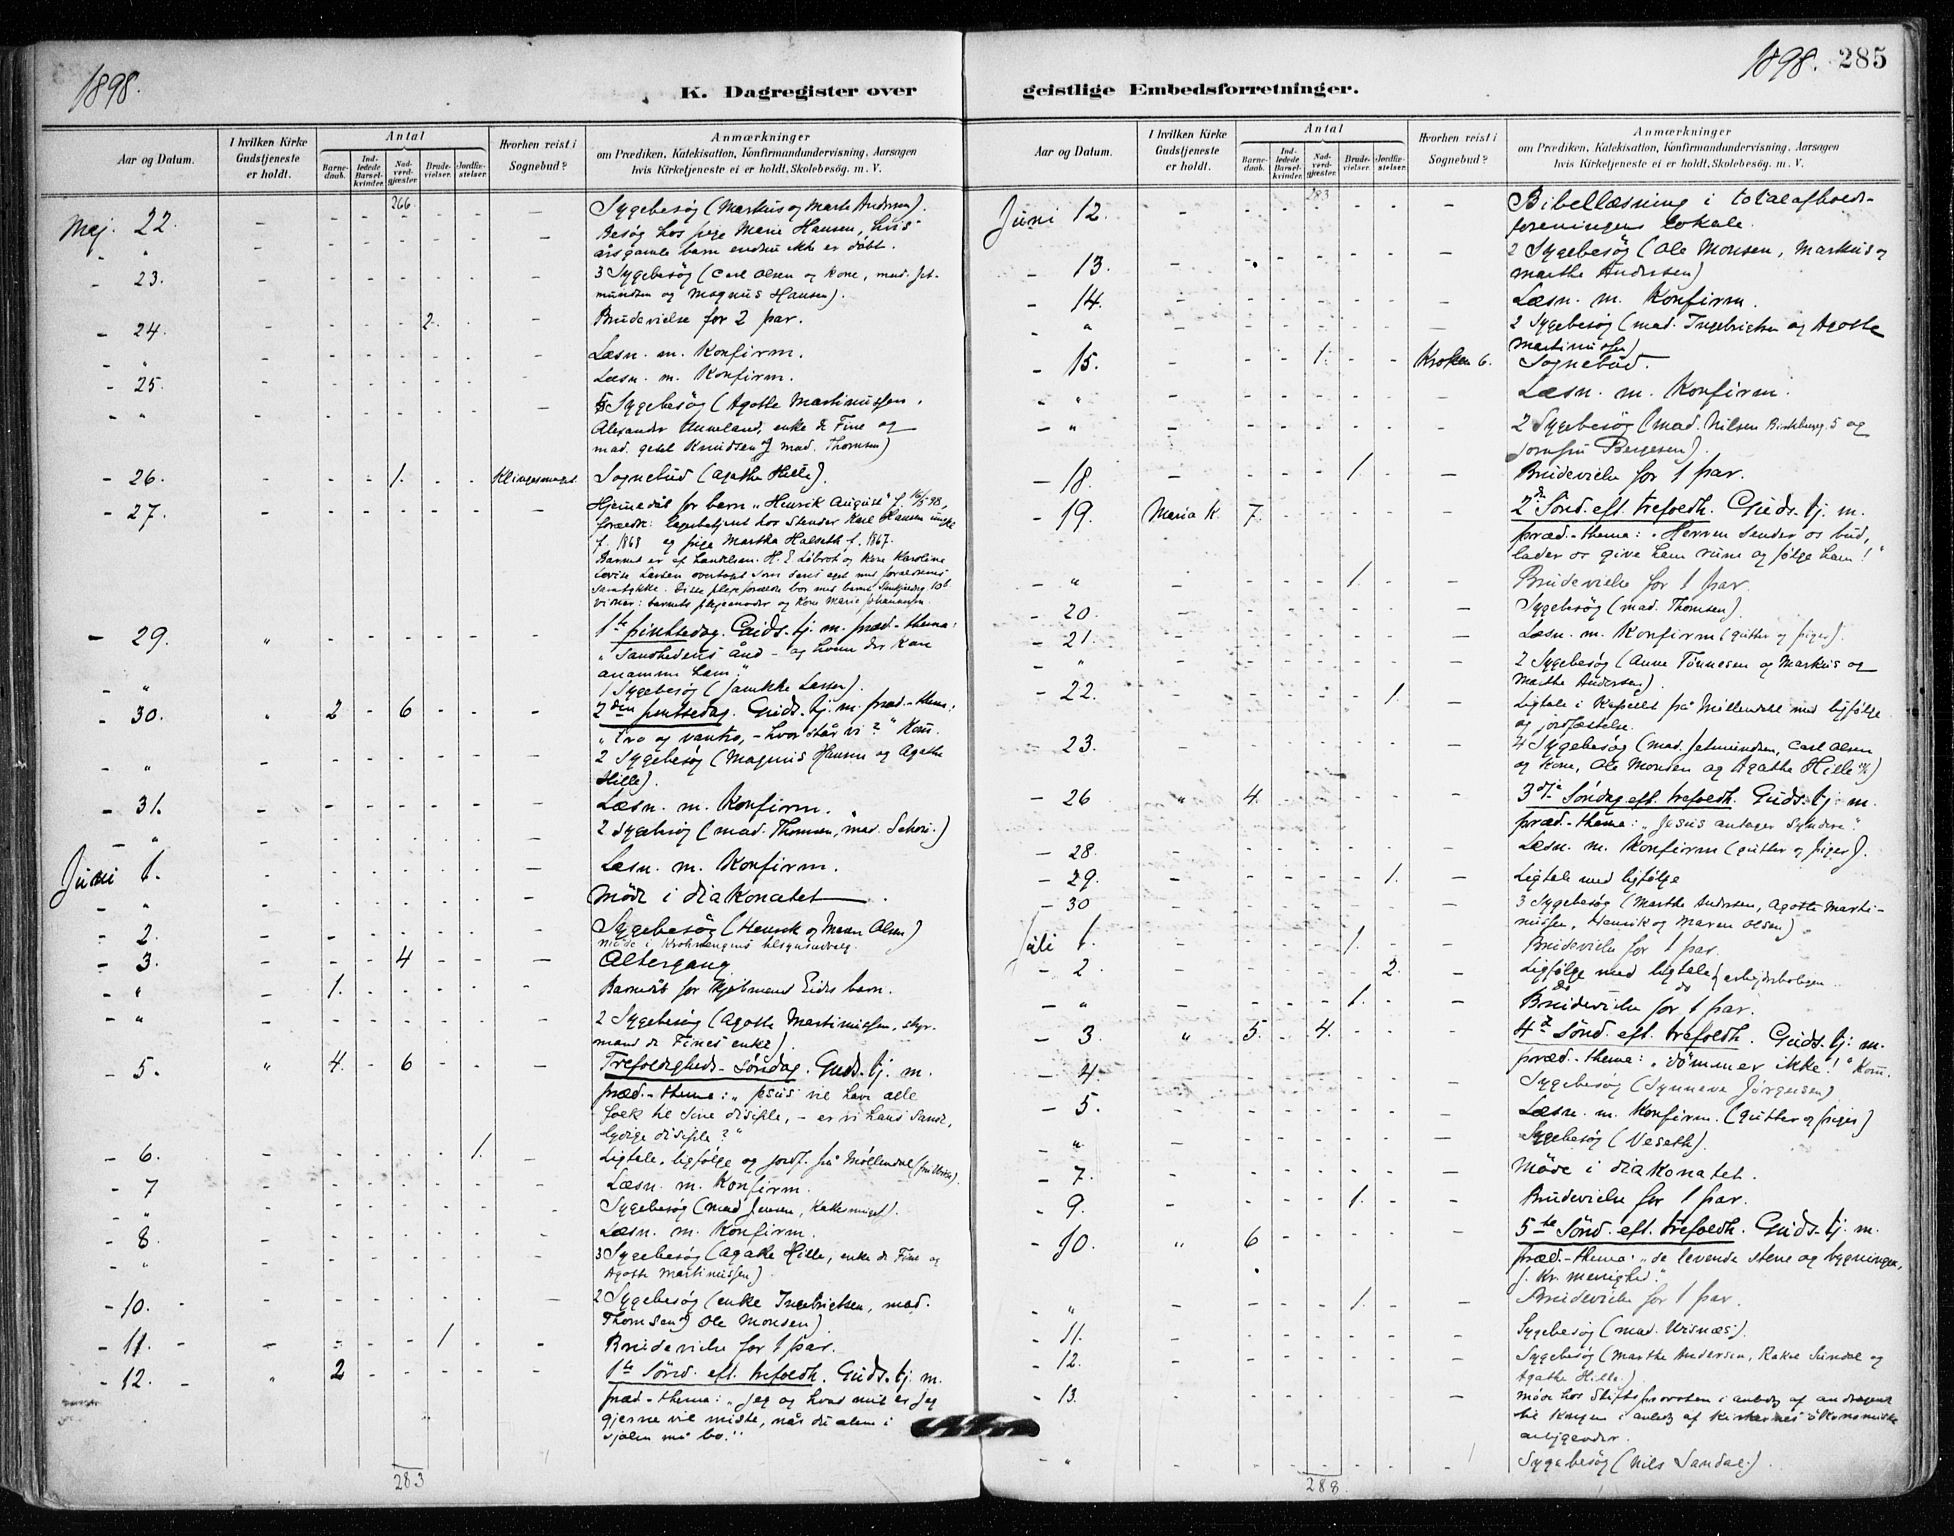 1898.
K. Dagregister over
Aar og Datum.
I hvilken Kirke Gudstjeneste er holdt.
Antal
Barnedaab.
Indledede Barselkvinder.
Nadverdgjæster.
Brudevielser.
Jordfæstelser.
Hvorhen reist i Sognebud?
Anmærkninger
om Prædiken, Katekisation, Konfirmandundervisning, Aarsagen
hvis Kirketjeneste ei er holdt, Skolebesøg. m. V.
266
Mej. 22. Sygebesøg (Markus og Marte Andersen).
" Besøg hos pige Marie Hansen, hvis
årsgamle barn endnu ikke er døbt.
- 23. 3 Sygebesøg (Carl Olsen og Kone, mad. Jetmundsen og Magnus Hansen).
- 24. 2. Brudevielse for 2 par.
" Læsn. m. Konfirm.
- 25. Læsn. m. Konfirm.
" Sygebesøg (Agotte Martinussen,
Alexander Unneland, enke de Fine og
mad. Knudsen og mad. Thomsen)
- 26. 1. Klingesmuget. Sognebud (Agathe Hille).
- 27. Hjemmedåb for barn "Henrik August" f. 16/5 98,
f. 1868 og pige Martha Halseth f. 1867.
- 29. " 1ste pintsedag. Guds-tj. m. præd.-thema:
"Sandhedens ånd - og hvem der kan
anamme ham."
" 1 Sygebesøg (Jannikke Larsen).
- 30. " 2 - 6 2den pintsedag. Guds-tj. m. præd.-thema:
"Tro og vantro, - hvor står vi?" Kom.
- " 2 Sygebesøg (Magnus Hansen og Agathe
Hille).
- 31. Læsn. m. Konfirm.
- " 2 Sygebesøg (mad. Thomsen, mad. )
Juni 1. Læsn. m. Konfirm.
- " Møde i diakonatet.
- 2. Sygebesøg (Henrik og Maren Olsen)
- 3. 4 Altergang
- " 1. Barnedåb for Kjøbmand Eides barn.
- " 2 Sygebesøg (Agotte Martinussen, styrmand de Fines enke).
- 5. " 4. - 6 Trefoldigheds-Søndag. Guds-tj. m.
præd.-thema: "Jesus vil have alle
folk til sine disciple, - er vi hans sandlydige disciple?"
- 6. 1. Ligtale, ligfølge og jordf. på Møllendal
- 7 Læsn. m. Konfirm.
" Sygebesøg (mad Jensen, ).
- 8. Læsn. m. Konfirm.
- " 3 Sygebesøg (Agathe Hille, enke de Fine og
Agotte Martinussen).
- 10. 2 Sygebesøg (enke Ingebrigtsen, mad.
Thomsen, Ole Monsen)
- 11. 1 Brudevielse for 1 par.
- 12. " 2 1ste Sønd. eft. trefoldh. Guds-tj. m.
præd-thema: "Jeg og hvad mit er jeg
gjerne vil miste, når du alene i
sjælen må bo."
283
1898. 285
geistlige Embedsforretninger.
Aar og Datum.
I hvilken Kirke Gudstjeneste er holdt.
Antal
Barnedaab.
Indledede Barselkvinder.
Nadverdgjæster.
Brudevielser.
Jordfæstelser.
Hvorhen reist i Sognebud?
Anmærkninger
om Prædiken, Katekisation, Konfirmandundervisning. Aarsagen
hvis Kirketjeneste ei er holdt, Skolebesøg. m. V.
283
Juni 12. Bibellæsning i totalafholdsforeningens lokale.
- 13. 2 Sygebesøg (Ole Monsen, Markus og
Marthe Andersen)
- 14. Læsn. m. Konfirm.
" 2 Sygebesøg (mad. Ingebrigtsen og Agotte
Martinussen)
- 15. 1. Kroken 6. Sognebud.
- " Læsn. m. Konfirm.
- " 2 Sygebesøg (mad. Nilsen 5 og
Jomfru Børgesen).
- 18. 1. Brudevielse for 1 par.
- 19. Maria K. 7. 2den Sønd. eft. trefoldh. Guds-tj. m.
præd-thema: "Herren sender os bud,
lader os give ham rum og følge ham!"
- " 1. Brudevielse for 1 par
- 20 Sygebesøg (mad. Thomsen).
- 21. Læsn. m. Konfirm (gutter og piger).
" 2 Sygebesøg (Anne Tønnesen og Markus og
Marthe Andersen).
- 22. 1. Ligtale i Kapellet på Møllendal med ligfølge
og jordfæstelse.
- 23. 4 Sygebesøg (mad. Jetmundsen, Carl Olsen
og Kone, Ole Monsen og Agathe Hille)
- 26 " 4. 3die Søndag eft. trefoldh. Guds-tj. m.
præd.-thema: "Jesus antager syndere".
- 28. Læsn. m. Konfirm (gutter og piger).
- 29. 1. Ligtale med ligfølge
- 30 3 Sygebesøg (Marthe Andersen, Agotte Martinussen, Henrik og Maren Olsen)
Juli 1. 1. Brudevielse for 1 par.
- 2 2. Ligfølge med ligtale
- " 1. Brudevielse for 1 par.
- 3 " 5. - 4. 4de Sønd. eft. trefoldh. Guds-tj. m.
præd.-thema: "dømmer ikke!" Kom.
- 4. Sygebesøg (Synneve Jørgensen)
- 5. Læsn. m. Konfirm. (gutter og piger)
" Sygebesøg (Veseth).
- 7. Møde i diakonatet.
- 9. 1. Brudevielse for 1 par.
- 10. " 6 5te Sønd. eft. trefoldh. Guds-tj. m.
præd.-thema: "de levende stene og bygningen,
J. Kr. menighed."
- " 1. Brudevielse for 1 par.
- 11. Sygebesøg (mad. Urisnæs).
- 12. Sygebesøg (Marthe Andersen, Rakel Sundal og
Agathe Hille.)
- 13. Møde hos Stiftsprovsten i anledg af andragende
til Kongen i anledg af Kirkernes økonomiske
anliggender.
- " Sygebesøg (Nils Sandal.)
288.